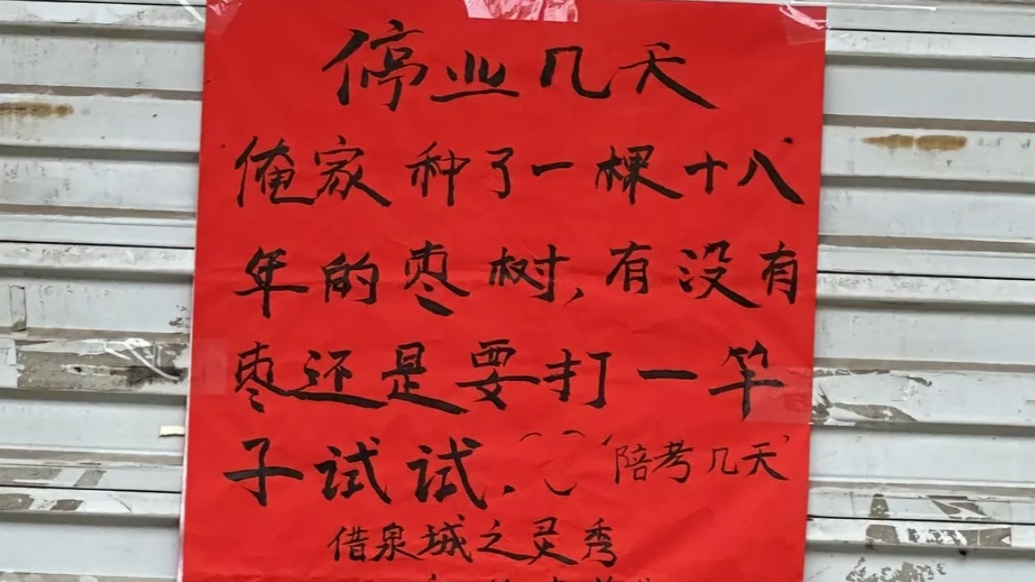 停业几天
俺家种了一棵十八
年的枣树,有没有
枣还是要打一竿
子试试.
陪考几天
借泉城之灵秀